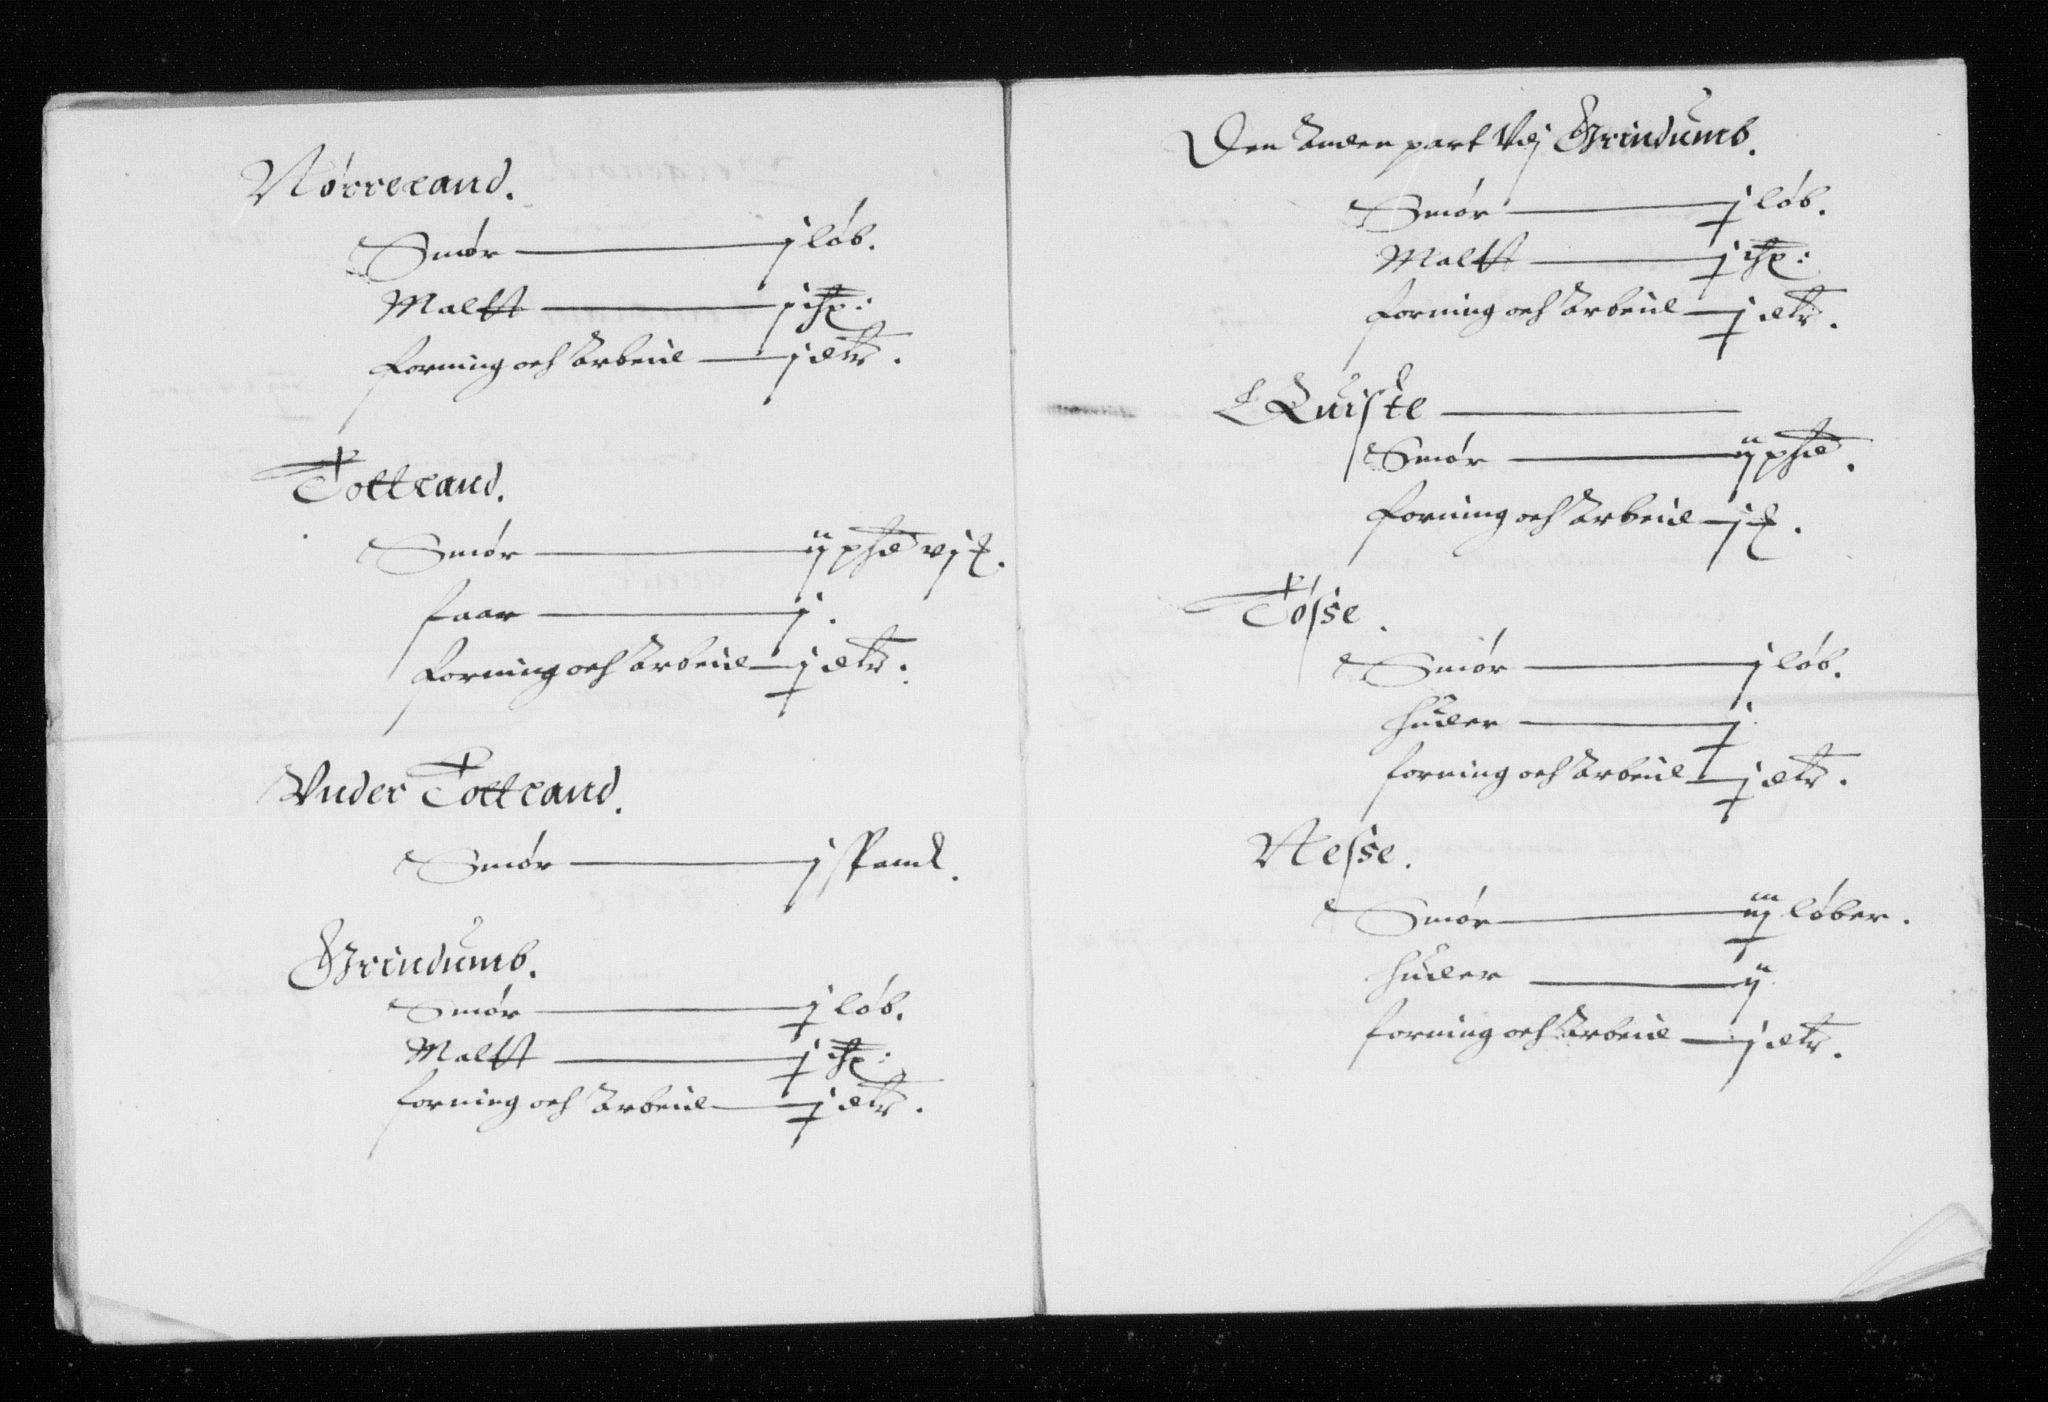 Nørrerand.
Smør — j løb.
Maltt — j
Forning och Arbeid — j dlr.
Tottrand.
Smør — ij
faar — j.
Forning och Arbeid — j dlr.
Vnder Tottrand.
Smør — j spand.
Grindumb.
Smør — j løb.
Maltt — j
Forning och Arbeid — j dlr.
Den Anden part Vdj Grindumb.
Smør — j løb.
Maltt — j
Forning och Arbeid — j dlr.
Quiste —
Smør — ij
Forning och Arbeid — j
Tøsse.
Smør — j løb.
Huder — j
Forning och Arbeid — j dlr.
Nesse.
Smør — løber.
Huder — ij
Forning och Arbeid — j dlr.